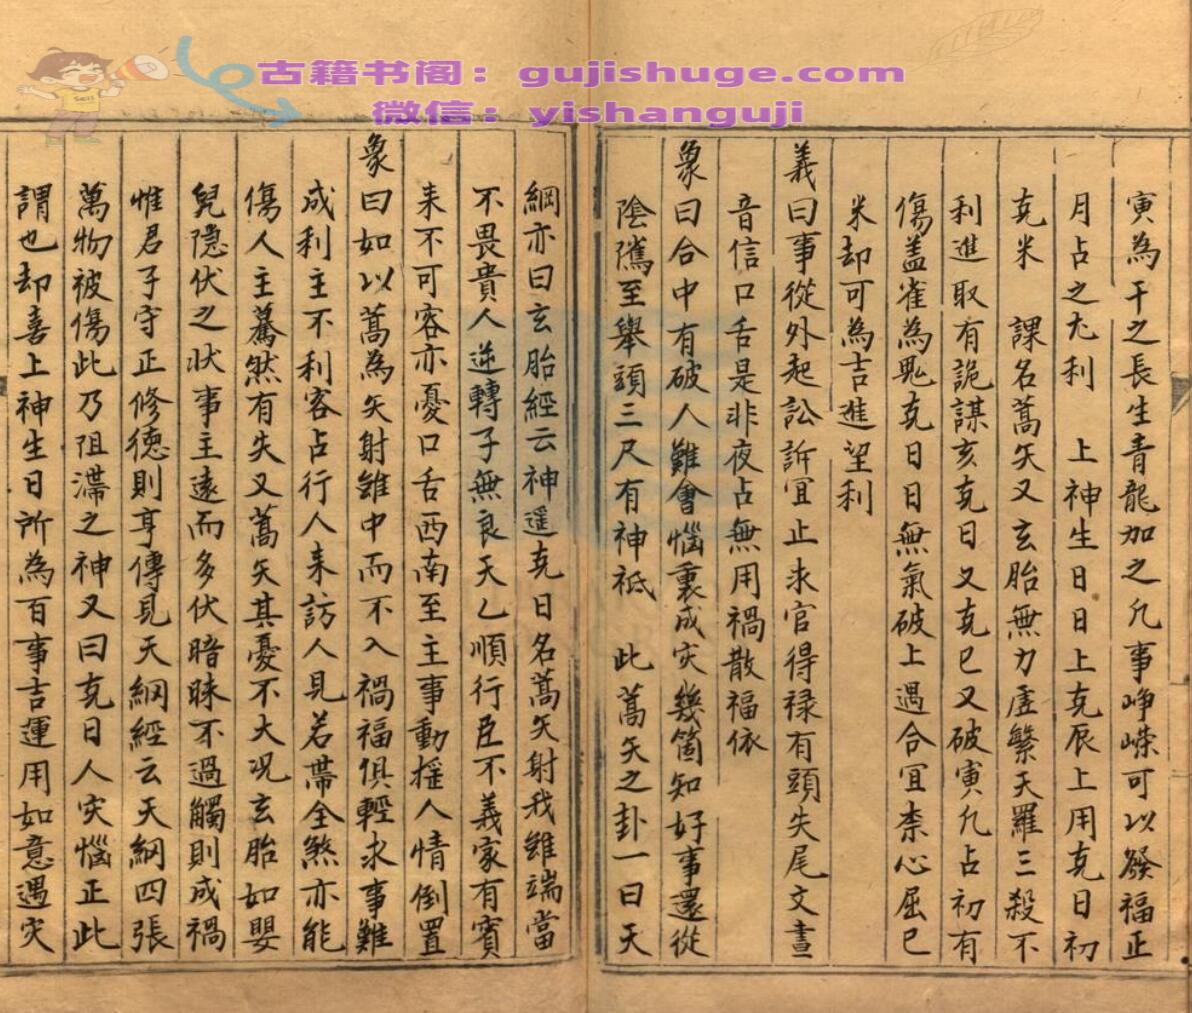 古籍书阁：gujishuge.com
微信：yishanguji
寅為干之長生青龍加之凢事崢嶸可以發福正
月占之尢利　上神生日日上克辰上用克日初
克米　課名蒿矢又玄胎無力虛繫天羅三殺不
利進取有詭謀亥克日又克巳又破寅凢占初有
傷蓋雀為鬼克日日無氣破上遇合冝柰心屈已
米却可為吉進望利
義曰事從外起訟訴冝止求官得禄有頭失尾文書
音信口舌是非夜占無用禍散福依
象曰合中有破人難會惱裏成灾幾箇知好事還從
陰隲至舉頭三尺有神祗　此蒿矢之卦一曰天
綱亦曰玄胎經云神遥克日名蒿矢射我雖端當
不畏貴人逆轉子無良天乙順行臣不義家有賓
来不可容亦憂口舌西南至主事動揺人情倒置
象曰如以蒿為矢射雖中而不入禍福俱輕求事難
成利主不利客占行人来訪人見若帶全煞亦能
傷人主驀然有失又蒿矢其憂不大况玄胎如嬰
兒隠伏之状事主遠而多伏暗昧不過觸則成禍
惟君子守正修德則亨傳見天綱經云天綱四張
萬物被傷此乃阻滯之神又曰克日人灾惱正此
謂也却喜上神生日所為百事吉運用如意遇灾